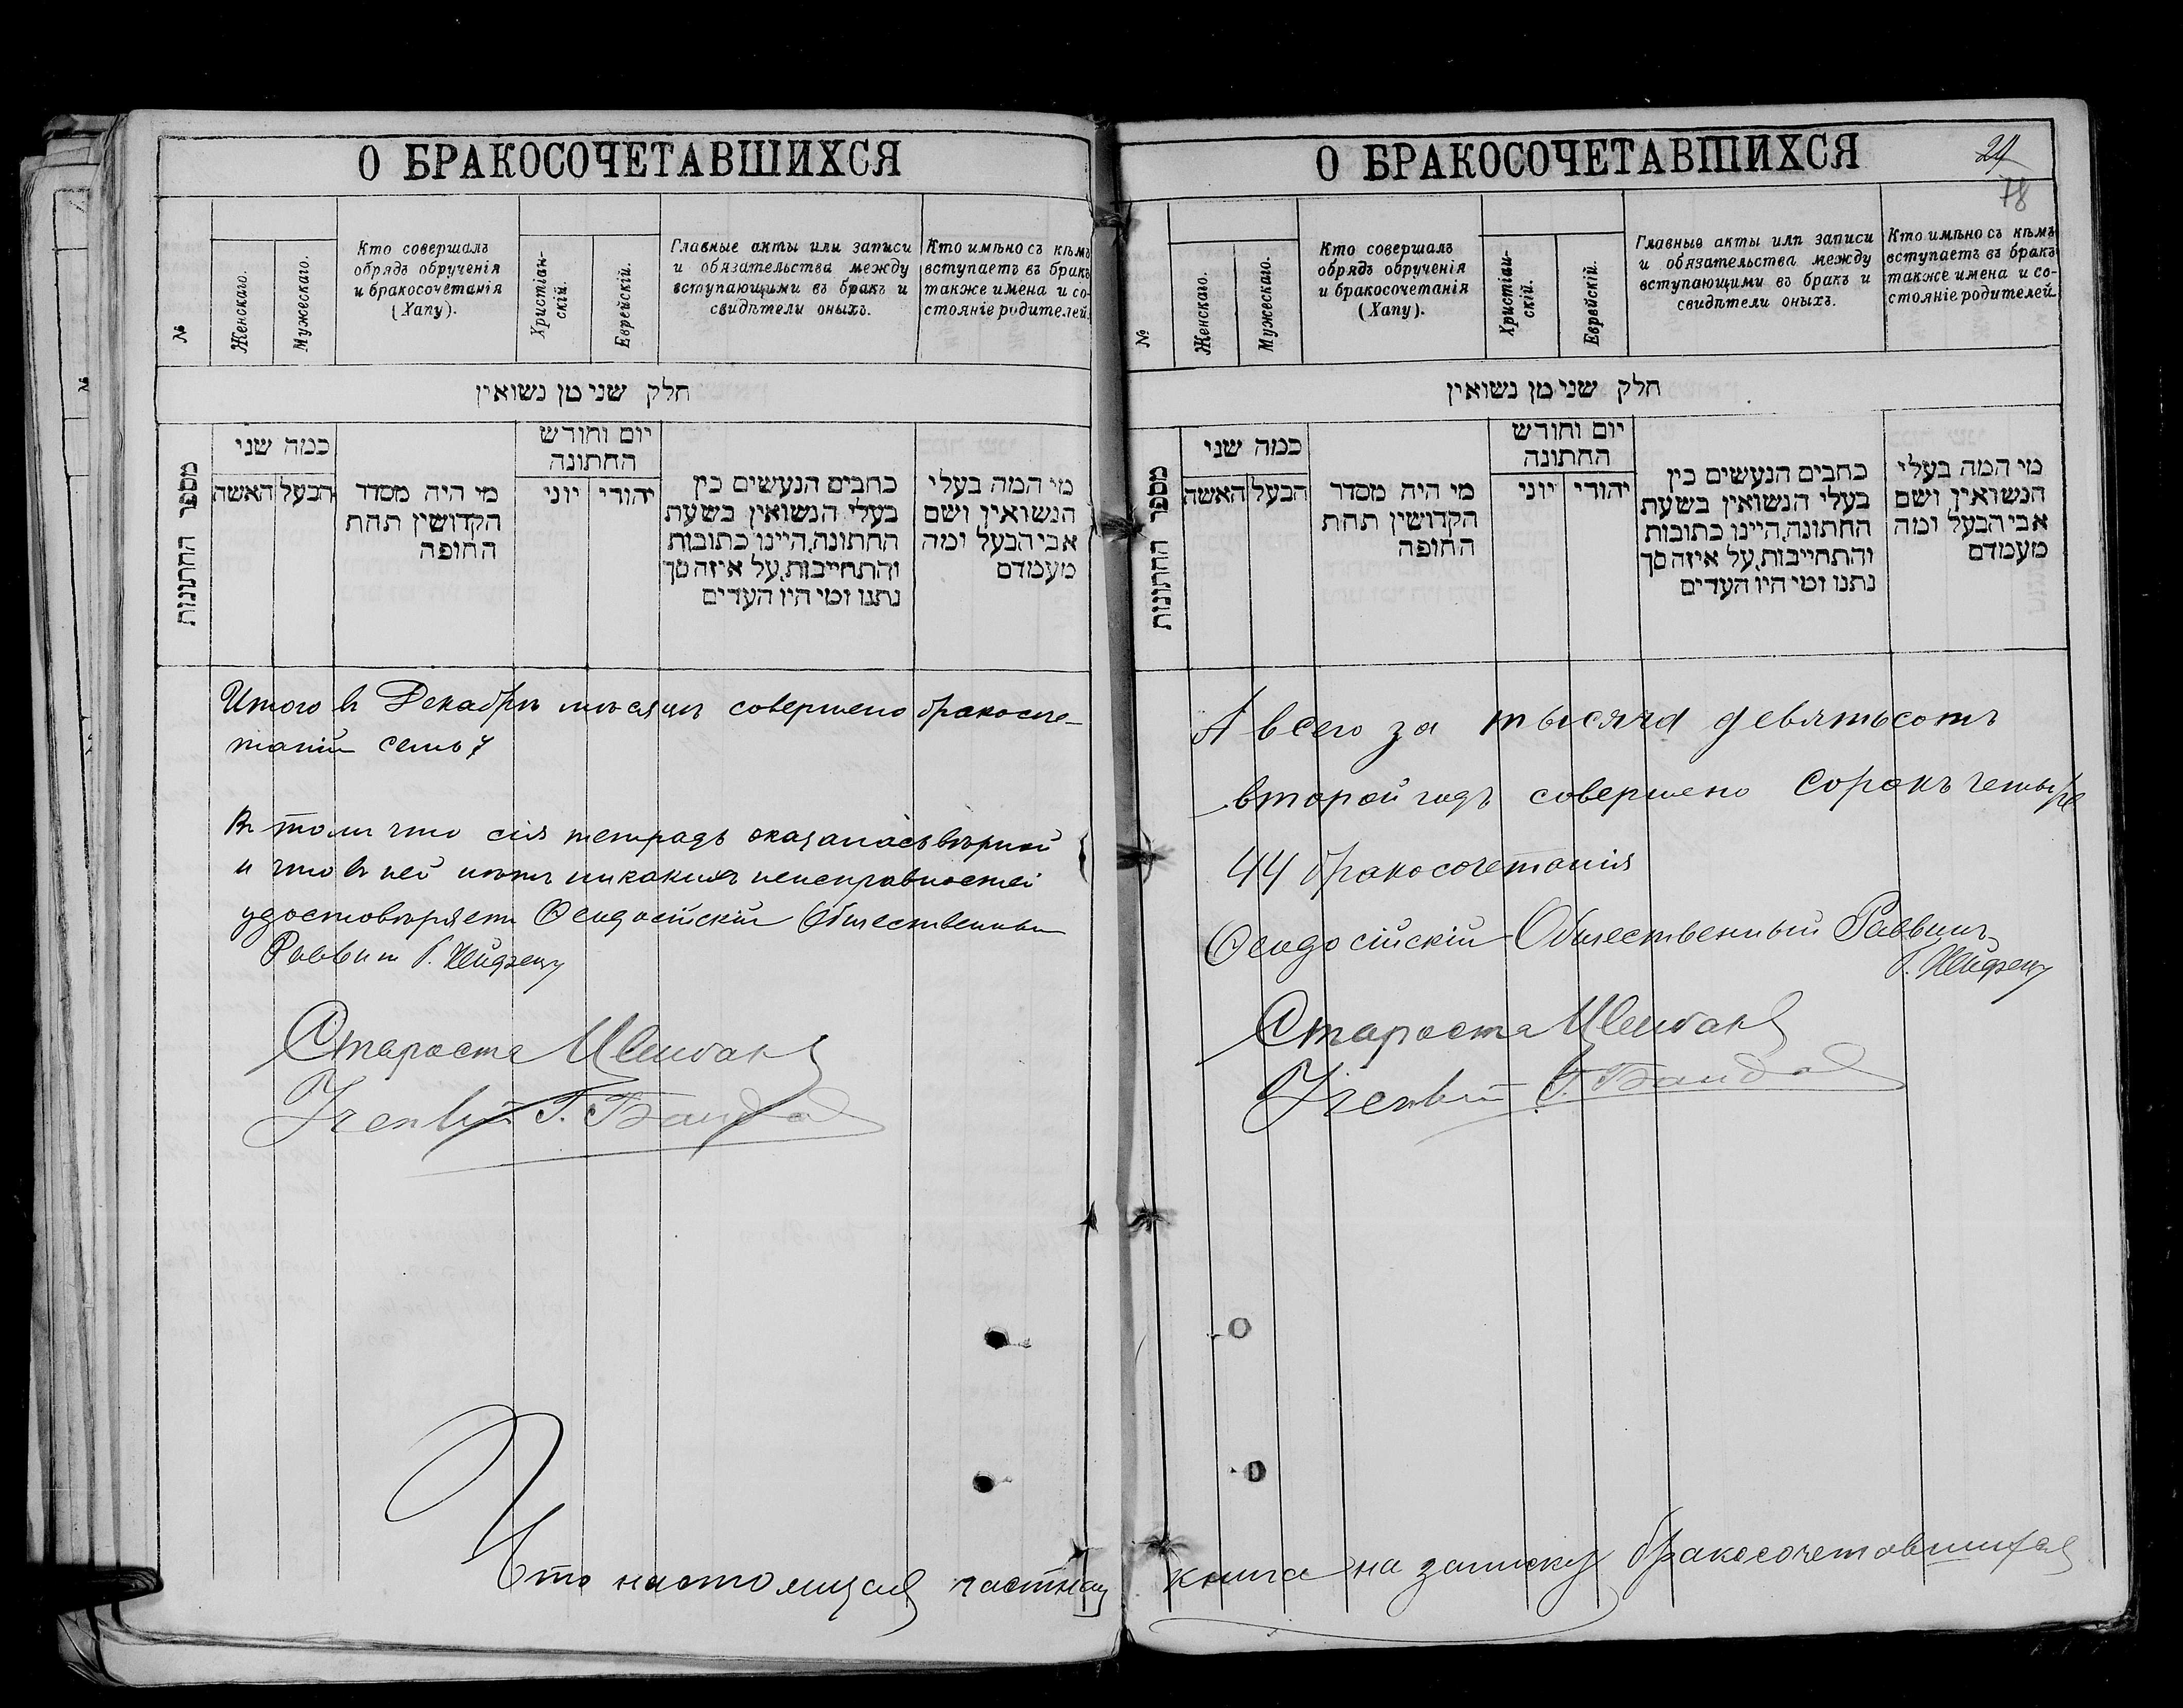 О БРАКОСОЧЕТАВШИХСЯ
№
Женскаго.
Мужескаго.
Кто совершалъ
обрядъ обрученія
и бракосочетанія
(Хапу).
Христіан-
скій.
Еврейскій.
Главные акты или записи
и обязательства между
вступающими въ бракъ и
свидѣтели оныхъ.
Кто имѣно съ кѣмъ
вступаетъ въ бракъ
также имена и со-
стояніе родителей.
חלק שני מן נשואין
מספר החתונות
כמה שני
האשה
הבעל
מי היה מסדר
הקדושין תחת
החופה
יום וחודש
החתונה
יוני
יהודי
כתבים הנעשים בין
בעלי הנשואין בשעת
החתונה, היינו כתובות
והתחייבות, על איזה סך
נתנו ומי היו העדים
מי המה בעלי
הנשואין ושם
אבי הבעל ומה
מעמדם
Итого въ Декабрѣ мѣсяцѣ совершено бракосоче-
таній семь 7
Въ томъ что сія тетрадь оказалась вѣрной
и что въ ней нѣтъ никакихъ неисправностей
удостовѣряетъ Ѳеодосійскій Общественный
Раввинъ Г.
Староста
Ученый Г.
Что настоящая частная
О БРАКОСОЧЕТАВШИХСЯ
24
78
№
Женскаго.
Мужескаго.
Кто совершалъ
обрядъ обрученія
и бракосочетанія
(Хапу).
Христіан-
скій.
Еврейскій.
Главные акты или записи
и обязательства между
вступающими въ бракъ и
свидѣтели оныхъ.
Кто имѣно съ кѣмъ
вступаетъ въ бракъ
также имена и со-
стояніе родителей.
חלק שני מן נשואין
מספר החתונות
כמה שני
האשה
הבעל
מי היה מסדר
הקדושין תחת
החופה
יום וחודש
החתונה
יוני
יהודי
כתבים הנעשים בין
בעלי הנשואין בשעת
החתונה, היינו כתובות
והתחייבות, על איזה סך
נתנו ומי היו העדים
מי המה בעלי
הנשואין ושם
אבי הבעל ומה
מעמדם
А всего за тысяча девятьсотъ
второй годъ совершено сорокъ четыре
44 бракосочетанія
Ѳеодосійскій Общественный Раввинъ
Г.
Староста
Ученый Г.
книга на записку бракосочетовшихся